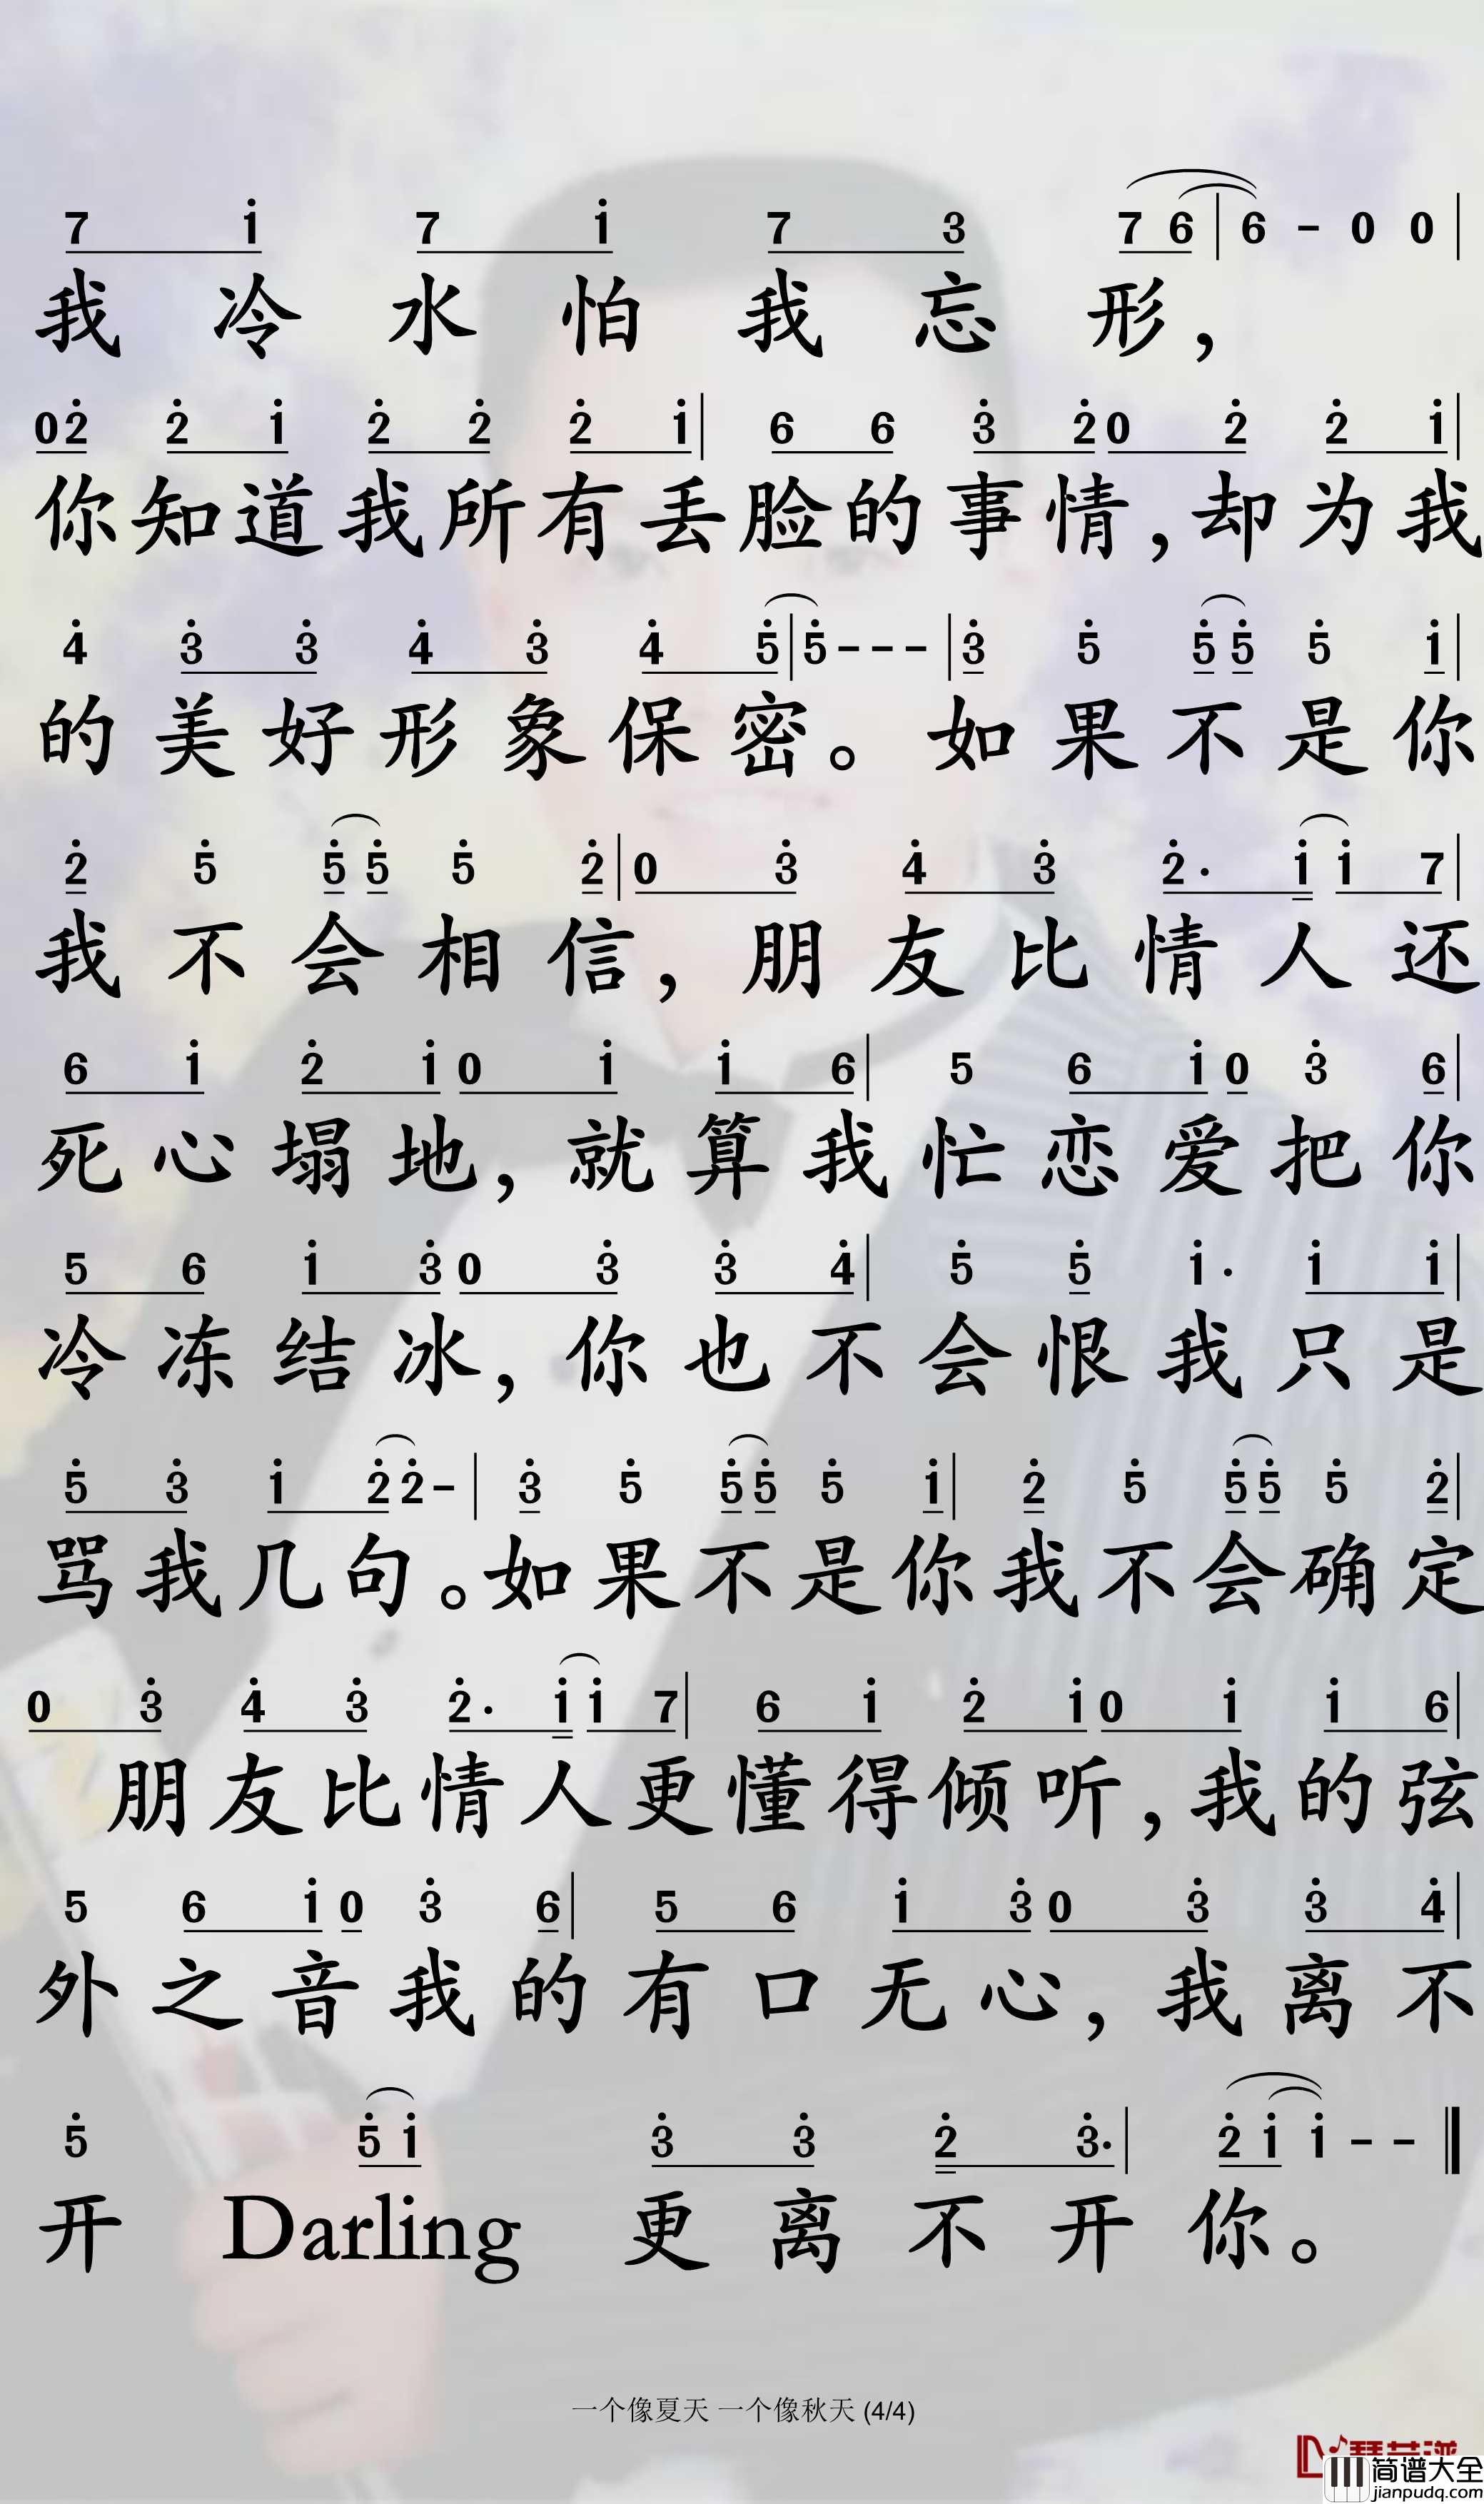 7 1 7 1 7 3 7 6 | 6 - 0 0 |
我冷水怕我忘形，
0 2 2 1 2 2 2 1 | 6 6 3 2 0 2 2 1 |
你知道我所有丢脸的事情，却为我
4 3 3 4 3 4 5 | 5 - - - | 3 5 5 5 5 1 |
的美好形象保密。如果不是你
2 5 5 5 5 2 | 0 3 4 3 2· 1 1 7 |
我不会相信，朋友比情人还
6 1 2 1 0 1 1 6 | 5 6 1 0 3 6 |
死心塌地，就算我忙恋爱把你
5 6 1 3 0 3 3 4 | 5 5 1· 1 1 |
冷冻结冰，你也不会恨我只是
5 3 1 2 2 - | 3 5 5 5 5 1 | 2 5 5 5 5 2 |
骂我几句。如果不是你我不会确定
0 3 4 3 2· 1 1 7 | 6 1 2 1 0 1 1 6 |
朋友比情人更懂得倾听，我的弦
5 6 1 0 3 6 | 5 6 1 3 0 3 3 4 |
外之音我的有口无心，我离不
5 5 1 3 3 2 3· | 2 1 1 - - ‖
开 Darling 更离不开你。
一个像夏天 一个像秋天 (4/4)
简谱大全
jianpudq.com